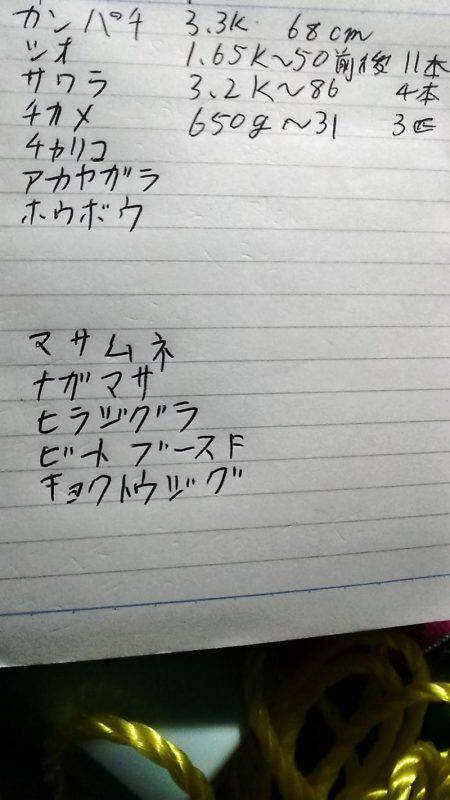 カンパチ 3.3K. 68cm
ツオ 1.65K~50前後 11本
サワラ 3.2K~86 4本
チカメ 650g~31 3匹
チャリコ
アカヤガラ
ホウボウ
マサムネ
ナガマサ
ヒラジグラ
ビートブースド
キョクトウジグ